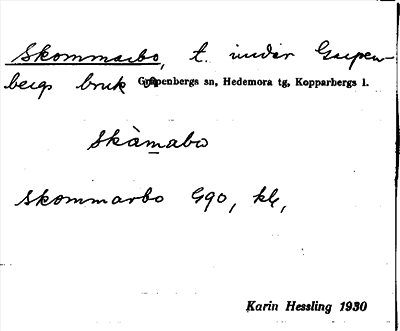 Skommarbo, t. under Garpen-
bergs bruk Garpenbergs sn, Hedemora tg, Kopparbergs l.
skàmabω
skommarbo G90, kk,
Karin Hessling 1930